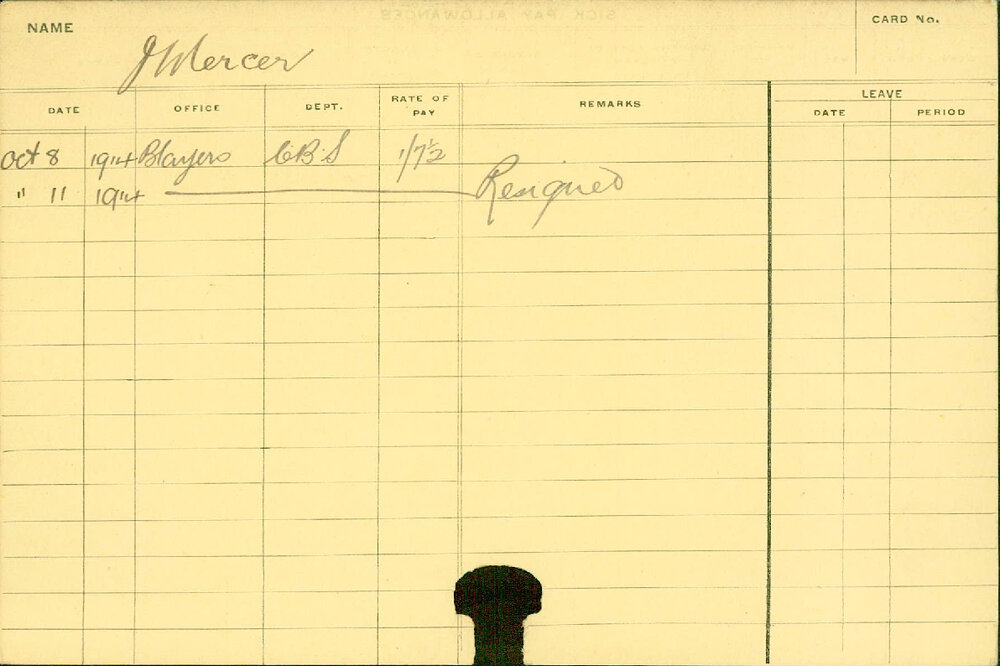 NAME
J Mercer
CARD No.
DATE OFFICE DEPT. RATE OF PAY REMARKS LEAVE
DATE PERIOD
Oct 8 1914 Blayero C.B.S 1/7½
" 11 1914 Resigned